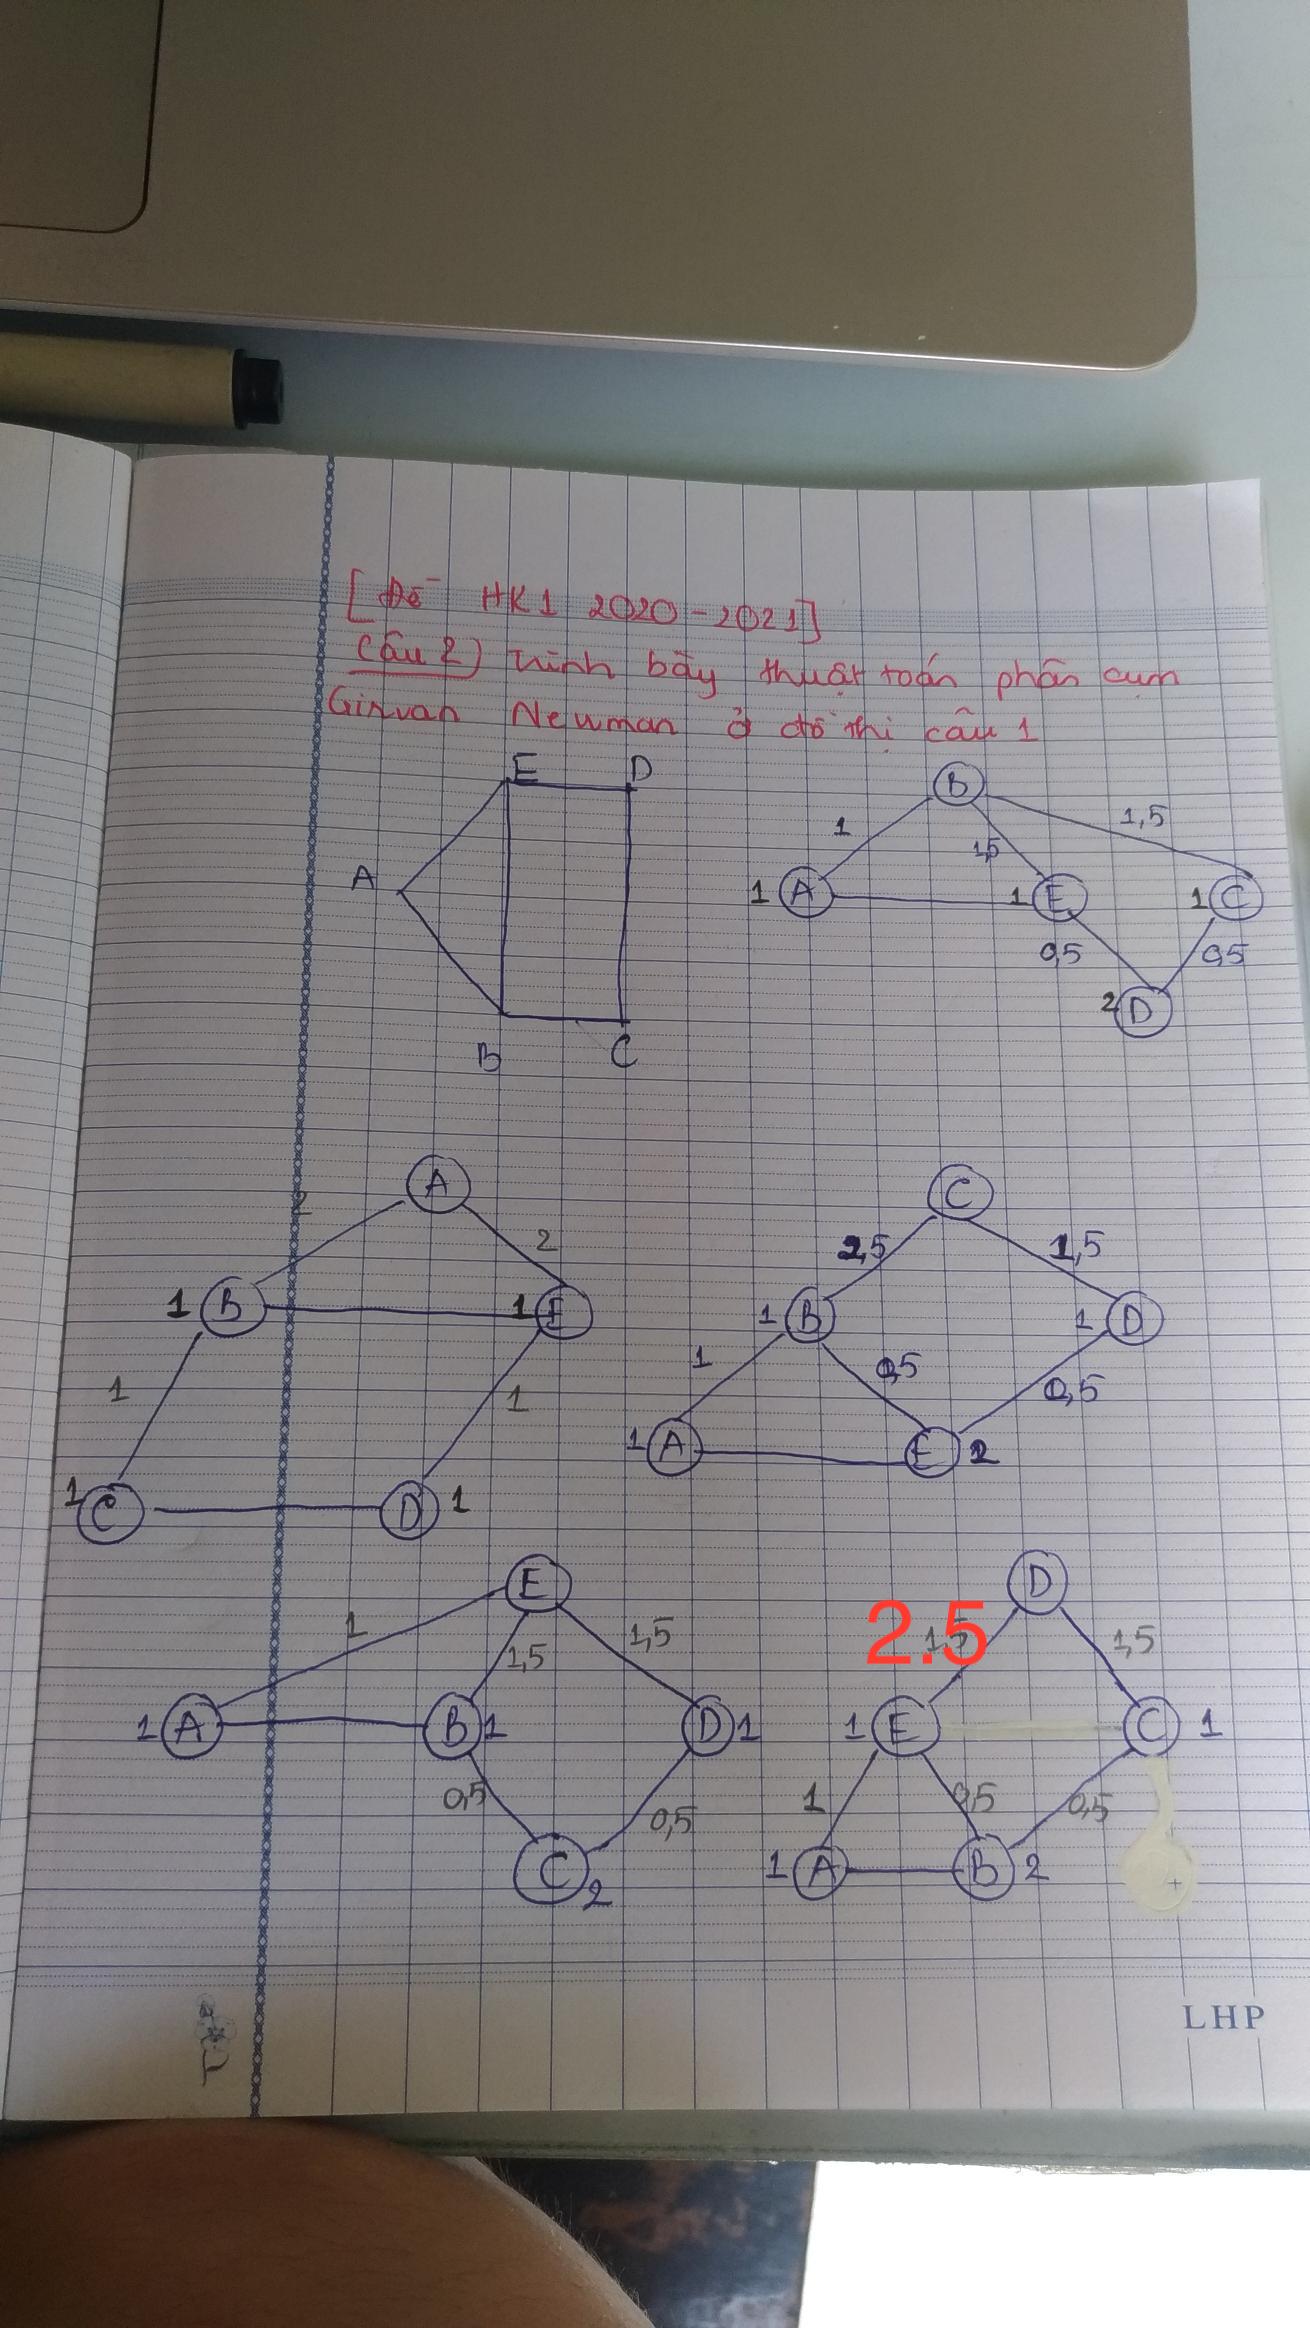 [Đề HK1 2020-2021]
Câu 2) Trình bày thuật toán phân cụm
Girvan Newman ở đồ thị câu 1
E D
A
B C
B
1 1,5 1,5
1 A 1 E 1 C
0,5 0,5
2 D
A
2 2
1 B 1 E
1 1
1 C D 1
C
2,5 1,5
1 B 1 D
1 0,5 0,5
1 A E 2
E
1 1,5 1,5
1 A B 1 D 1
0,5 0,5
C 2
D
2.5 1,5 1,5
1 E C 1
1 0,5 0,5
1 A B 2
LHP